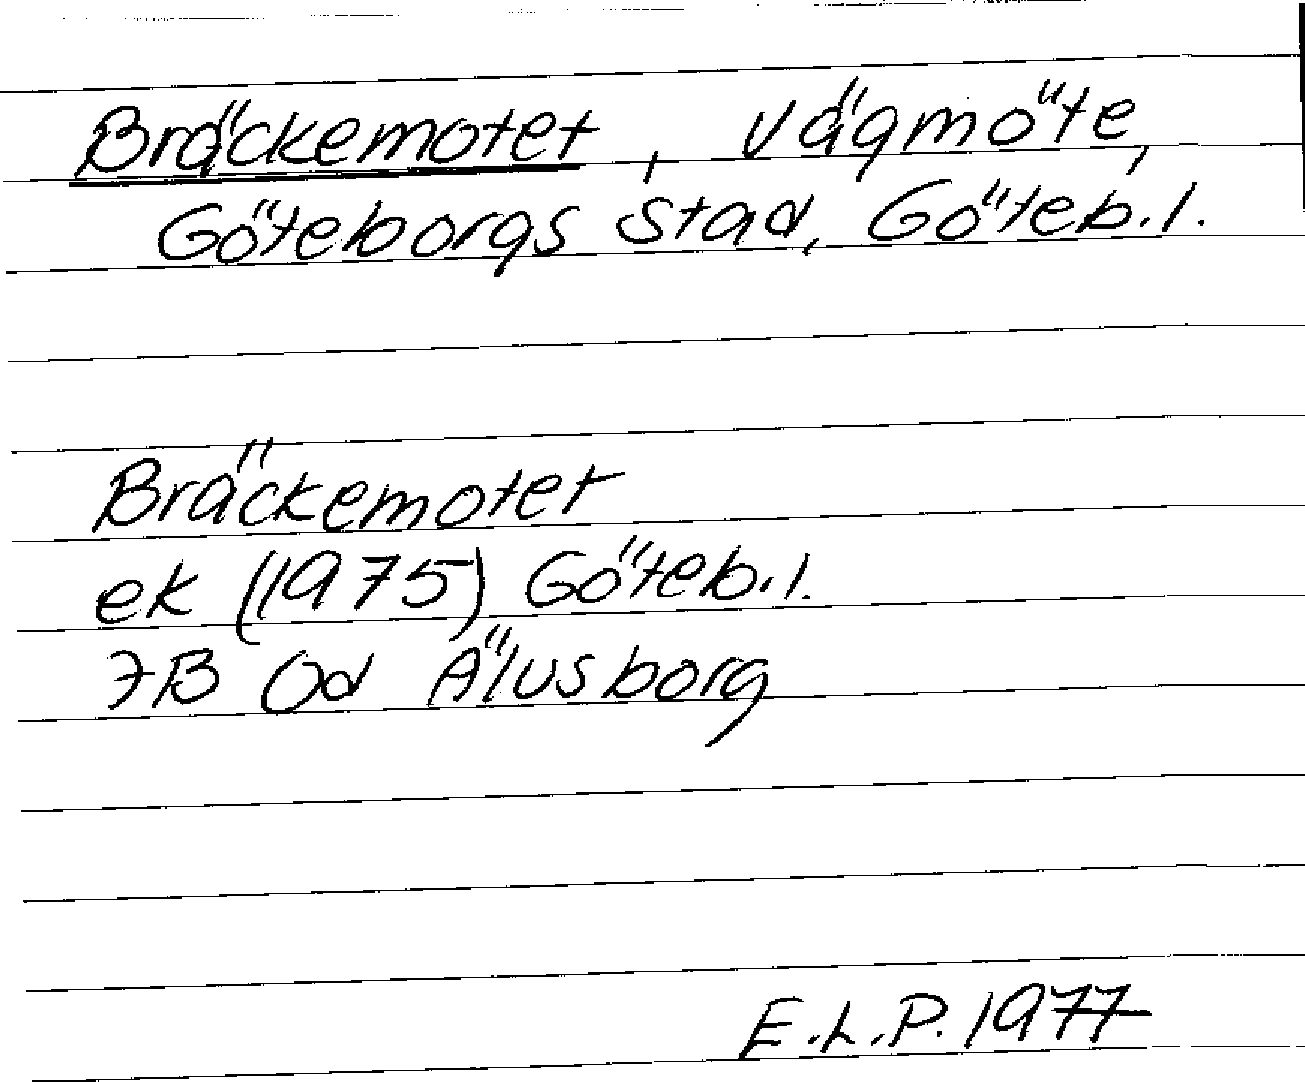 Bräckemotet, vägmöte,
Göteborgs stad, Göteb.l.
Bräckemotet
ek (1975) Göteb.l.
7B 0d Älvsborg
E.L.P. 1977